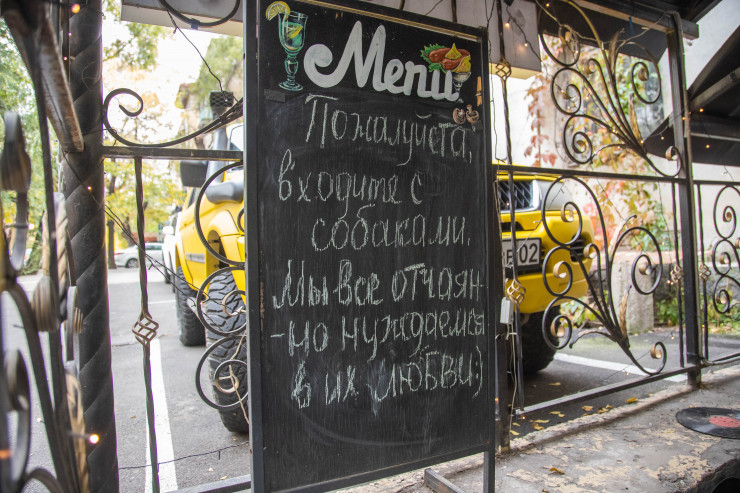 Menu
Пожалуйста,
входите с
собаками.
Мы все отчаян-
-но нуждаемся
в их любви:)
E02